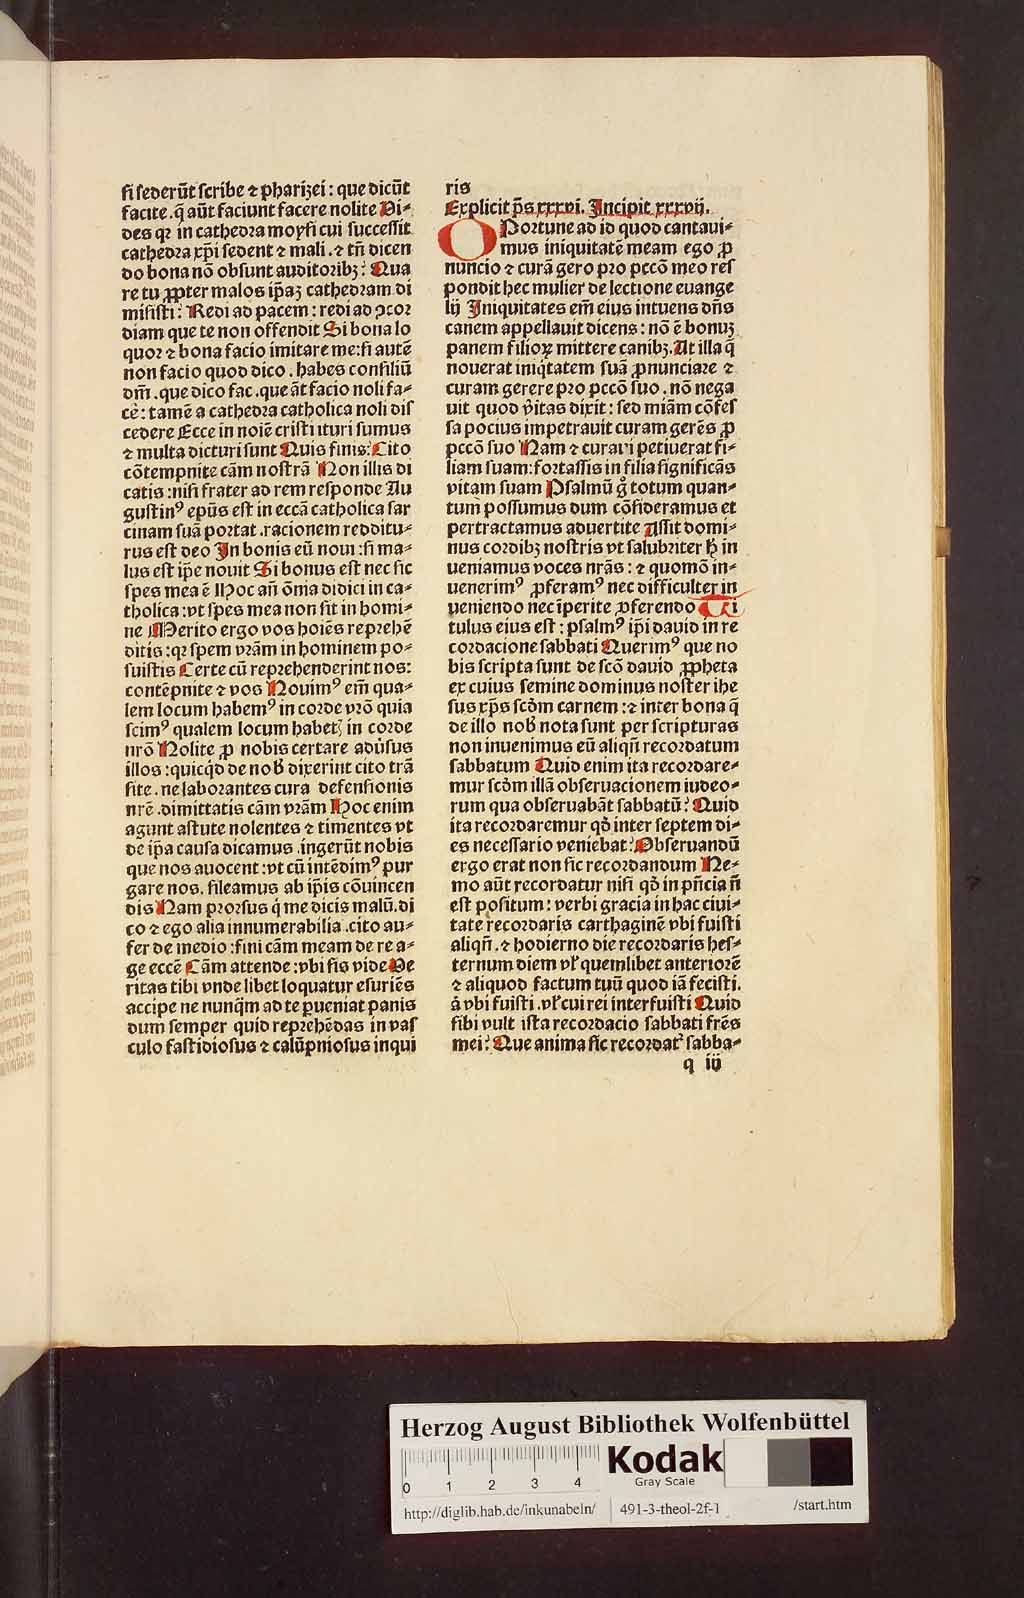 si sederūt scribe ⁊ pharizei : que dicūt
facite . q̄ aūt faciunt facere nolite Vi-
des qꝛ in cathedra moysi cui successit
cathedra xp̄i sedent ⁊ mali . ⁊ tn̄ dicen
do bona nō obsunt auditoribꝫ : Qua
re tu ꝓpter malos ip̄aꝫ cathedram di
misisti : Redi ad pacem : redi ad ꝯcor
diam que te non offendit Si bona lo
quor ⁊ bona facio imitare me : si autē
non facio quod dico . habes consiliū
dm̄ . que dico fac . que āt facio noli fa-
cē : tamē a cathedra catholica noli dis
cedere Ecce in noīe cristi ituri sumus
⁊ multa dicturi sunt Quis finis : Cito
cōtempnite cām nostrā Non illis di
catis : nisi frater ad rem responde Au
gustinꝰ ep̄us est in eccā catholica sar
cinam suā portat . racionem redditu-
rus est deo In bonis eū noui : si ma-
lus est ip̄e nouit Si bonus est nec sic
spes mea ē Hoc añ ōnia didici in ca-
tholica : vt spes mea non sit in homi-
ne Merito ergo vos hoiēs reprehē
ditis : qꝛ spem vrām in hominem po-
suistis Certe cū reprehenderint nos :
contēpnite ⁊ vos Nouimꝰ em̄ qua-
lem locum habemꝰ in corde vrō quia
scimꝰ qualem locum habetꝭ in corde
nrō Nolite ꝓ nobis certare adūsus
illos : quicq̇d de nob̄ dixerint cito trā
site . ne laborantes cura defensionis
nrē . dimittatis cām vrām Hoc enim
agunt astute nolentes ⁊ timentes vt
de ip̄a causa dicamus . ingerūt nobis
que nos auocent : vt cū intēdimꝰ pur
gare nos . sileamus ab ip̄is cōuincen
dis Nam prorsus q̇ me dicis malū . di
co ⁊ ego alia innumerabilia . cito au-
fer de medio : fini cām meam de re a-
ge eccē Cām attende : vbi sis vide Ve
ritas tibi vnde libet loquatur esuriēs
accipe ne nunq̄m ad te ꝑueniat panis
dum semper quid reprehēdas in vas
culo fastidiosus ⁊ calūpniosus inqui
ris
Explicit p̄s xxxvi. Incipit xxxvij.
OPortune ad id quod cantaui-
mus iniquitatē meam ego ꝓ
nuncio ⁊ curā gero pro pccō meo res
pondit hec mulier de lectione euange
lij Iniquitates em̄ eius intuens dn̄s
canem appellauit dicens : nō ē bonuꝫ
panem filioꝝ mittere canibꝫ . At illa q̄
nouerat iniq̇tatem suā ꝓnunciare ⁊
curam gerere pro pccō suo . nō nega
uit quod v̄itas dixit : sed miām cōfes
sa pocius impetrauit curam gerēs ꝓ
pccō suo Nam ⁊ curari petiuerat fi-
liam suam : fortassis in filia significās
vitam suam Psalmū gͦ totum quan-
tum possumus dum cōsideramus et
pertractamus aduertite Assit domi-
nus cordibꝫ nostris vt salubriter h̄ in
ueniamus voces nrās : ⁊ quomō in-
uenerimꝰ ꝓferamꝰ nec difficulter in
ueniendo nec īperite ꝓferendo Ti
tulus eius est : psalmꝰ ip̄i dauid in re
cordacione sabbati Querimꝰ que no
bis scripta sunt de scō dauid ꝓpheta
ex cuius semine dominus noster ihe
sus xp̄s scd̄m carnem : ⁊ inter bona q̄
de illo nob̄ nota sunt per scripturas
non inuenimus eū aliqn̄ recordatum
sabbatum Quid enim ita recordare-
mur scd̄m illā obseruacionem iudeo-
rum qua obseruabāt sabbatū : Quid
ita recordaremur qd̄ inter septem di-
es necessario veniebat : Obseruandū
ergo erat non sic recordandum Ne-
mo aūt recordatur nisi qd̄ in pn̄cia n̄
est positum : verbi gracia in hac ciui-
tate recordaris carthaginē vbi fuisti
aliqn̄ . ⁊ hodierno die recordaris hes-
ternum diem vl̄ quemlibet anteriorē
⁊ aliquod factum tuū quod iā fecisti .
a̓ vbi fuisti . vl̄ cui rei interfuisti Quid
sibi vult ista recordacio sabbati frēs
mei : Que anima sic recordat᷑ sabba-
q iij
Herzog August Bibliothek Wolfenbüttel
0 1 2 3 4
Kodak
Gray Scale
http://diglib.hab.de/inkunabeln/ 491-3-theol-2f-1 /start.htm